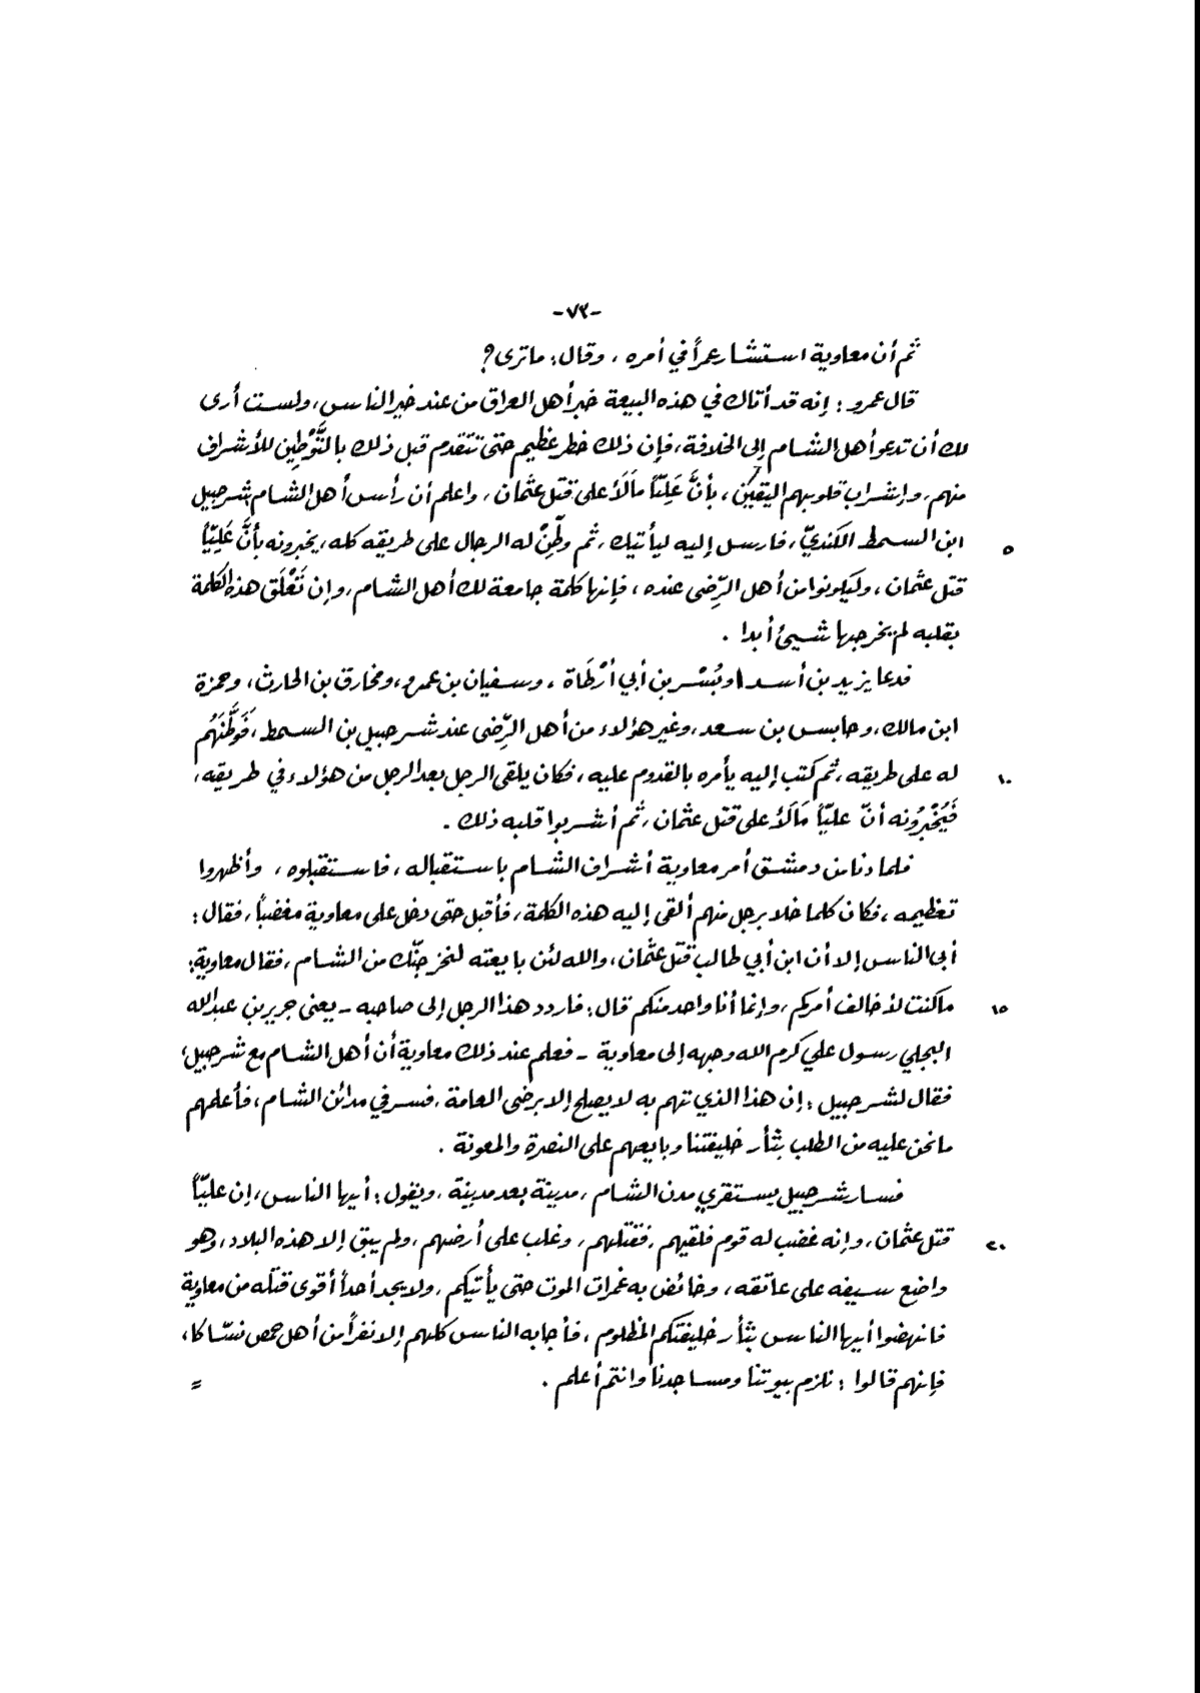 -٧٣-
ثم أن معاوية استشار عمراً في أمره ، وقال : ما ترى ؟
قال عمرو : إنه قد أتاك في هذه البيعة خبر أهل العراق من عند خير الناس ، ولست أرى
لك أن تدعو أهل الشام إلى الخلافة ، فإن ذلك خطر عظيم حتى تتقدم قبل ذلك بالتَّوْطِين للأشراف
منهم ، وإشراب قلوبهم اليقين ، بأنَّ عَلِيّاً مَالَأَ على قتل عثمان ، واعلم أن رأس أهل الشام شرحبيل
ابن السمط الكنديّ ، فارسل إليه ليأتيك ، ثم وطِّنْ له الرجال على طريقه كله ، يخبرونه بأنَّ عَلِيّاً ٥
قتل عثمان ، وليكونوا من أهل الرِّضى عنده ، فإنها كلمة جامعة لك أهل الشام ، وإن تَعْلَق هذه الكلمة
بقلبه لم يخرجها شيئ أبدا .
فدعا يزيد بن أسد ، وبُسْر بن أبي أرْطَاة ، وسفيان بن عمرو ، ومخارق بن الحارث ، وحمزة
ابن مالك ، وحابس بن سعد ، وغير هؤلاء من أهل الرِّضى عند شرحبيل بن السمط ، فَوَطَّنَهُم
له على طريقه ، ثم كتب إليه يأمره بالقدوم عليه ، فكان يلقى الرجل بعد الرجل من هؤلاء في طريقه ، ١٠
فَيُخْبِرُونه أنّ عليّاً مَالَأَ على قتل عثمان ، ثم أشربوا قلبه ذلك .
فلما دنا من دمشق أمر معاوية أشراف الشام باستقباله ، فاستقبلوه ، وأظهروا
تعظيمه ، فكان كلما خلا برجل منهم ألقى إليه هذه الكلمة ، فأقبل حتى دخل على معاوية مغضباً ، فقال :
أبى الناس إلا أن ابن أبي طالب قتل عثمان ، والله لئن بايعته لنخرجنّك من الشام ، فقال معاوية :
ماكنت لأخالف أمركم ، وإنما أنا واحد منكم قال : فاردد هذا الرجل إلى صاحبه - يعنى جرير بن عبد الله ١٥
البجلي رسول علي كرم الله وجهه إلى معاوية - فعلم عند ذلك معاوية أن أهل الشام مع شرحبيل ،
فقال لشرحبيل : إن هذا الذي تهم به لا يصلح إلا برضى العامة ، فسر في مدائن الشام ، فأعلمهم
ما نحن عليه من الطلب بثأر خليفتنا وبايعهم على النصرة والمعونة .
فسار شرحبيل يستقري مدن الشام ، مدينة بعد مدينة ، ويقول : أيها الناس ، إن عليّاً
قتل عثمان ، وإنه غضب له قوم فلقيهم ، فقتلهم ، وغلب على أرضهم ، ولم يبق إلا هذه البلاد ، وهو ٢٠
واضع سيفه على عاتقه ، وخائض به غمرات الموت حتى يأتيكم ، ولا يجد أحداً أقوى قتله من معاوية
فانهضوا أيها الناس بثأر خليفتكم المظلوم ، فأجابه الناس كلهم إلا نفراً من أهل حمص نسّاكا ،
فإنهم قالوا : نلزم بيوتنا ومساجدنا وانتم أعلم . =